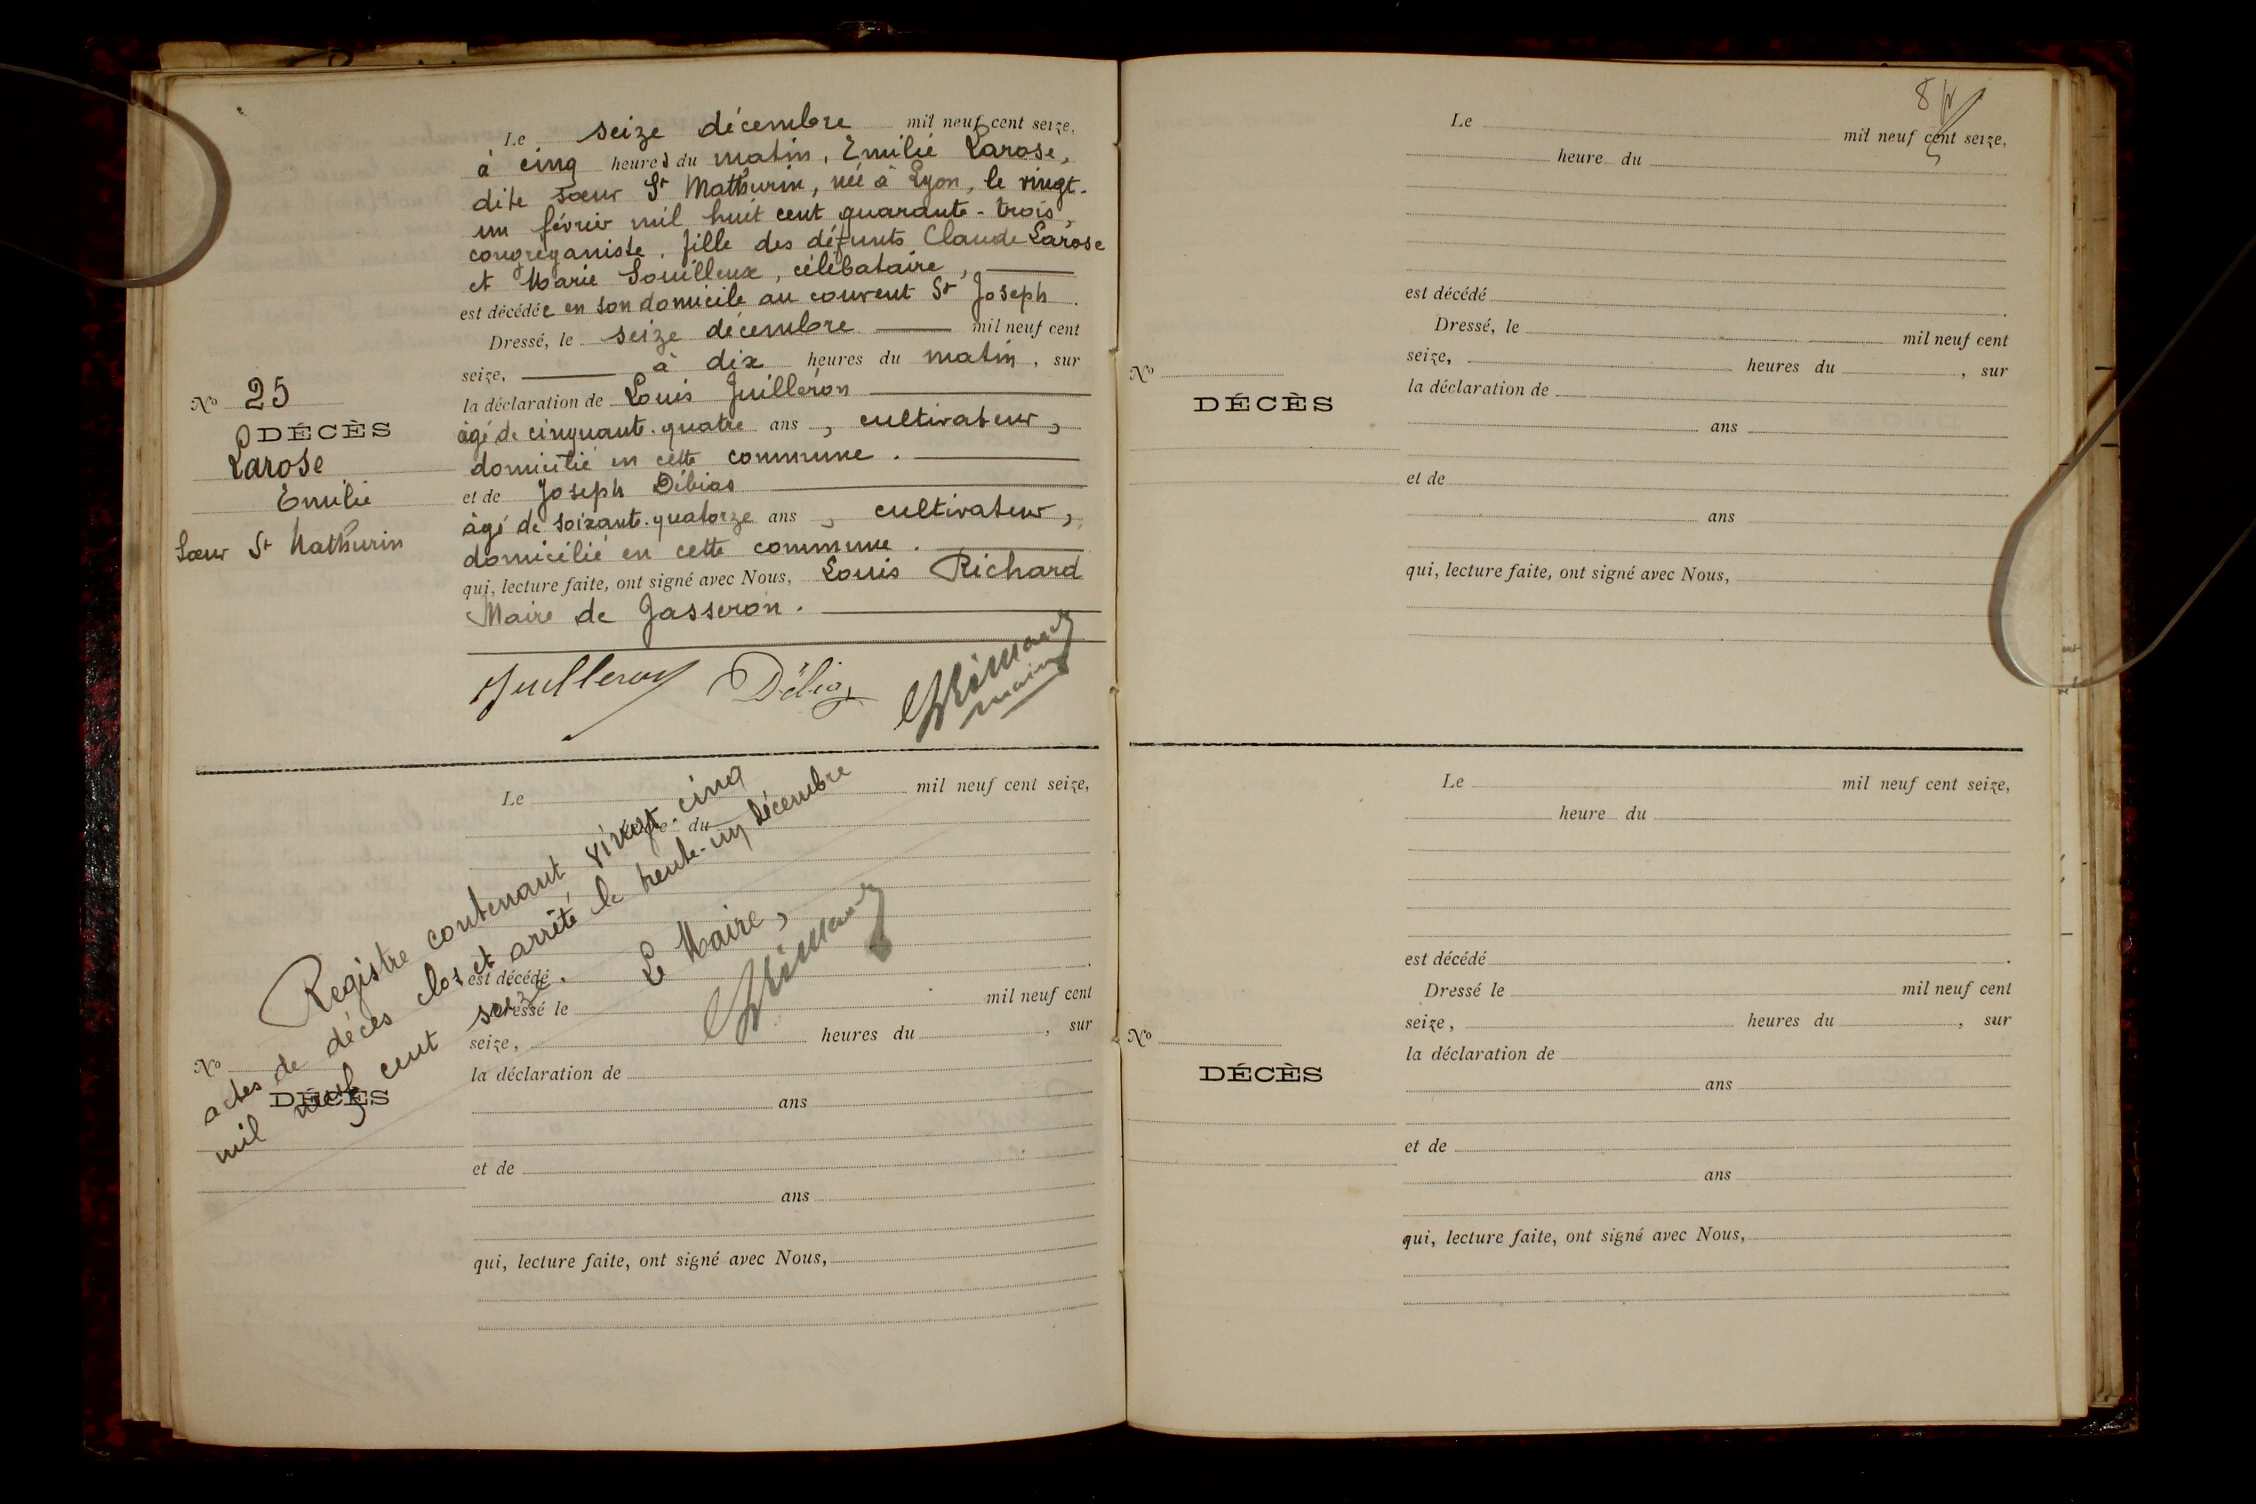 Le seize décembre mil neuf cent seize,
à cinq heures du matin, Emilie Larose,
dite sœur St Mathurin, née à Lyon, le vingt-
un février mil huit cent quarante-trois,
congréganiste, fille des défunts Claude Larose
et Marie Souilleux, célibataire,
est décédée en son domicile au couvent St Joseph.
Dressé, le seize décembre mil neuf cent
seize, à dix heures du matin, sur
la déclaration de Louis Juilleron
âgé de cinquante-quatre ans, cultivateur,
domicilié en cette commune.
et de Joseph Débias
âgé de soixante-quatorze ans, cultivateur,
domicilié en cette commune.
qui, lecture faite, ont signé avec Nous, Louis Richard
Maire de Jasseron.
Juilleron
maire
No 25
DÉCÈS
Larose
Emilie
Sœur St Mathurin
Le mil neuf cent seize,
heure du
est décédé
Dressé le mil neuf cent
seize, heures du , sur
la déclaration de
ans
et de
ans
qui, lecture faite, ont signé avec Nous,
No
DÉCÈS
Registre contenant vingt-cinq
actes de décès clos et arrêté le trente-un Décembre
mil neuf cent seize.
Le Maire,
8
Le mil neuf cent seize,
heure du
est décédé
Dressé, le mil neuf cent
seize, heures du , sur
la déclaration de
ans
et de
ans
qui, lecture faite, ont signé avec Nous,
No
DÉCÈS
Le mil neuf cent seize,
heure du
est décédé
Dressé le mil neuf cent
seize, heures du , sur
la déclaration de
ans
et de
ans
qui, lecture faite, ont signé avec Nous,
No
DÉCÈS